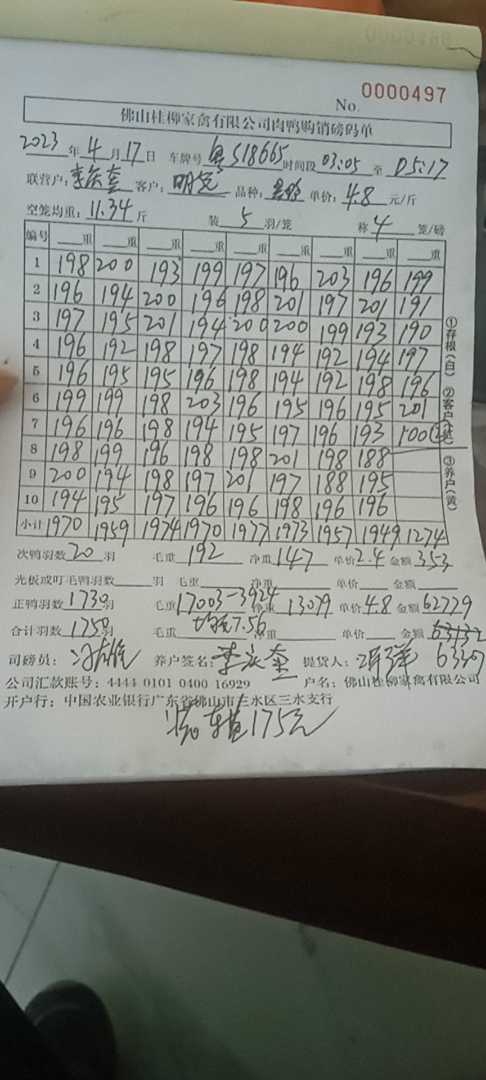 No. 0000497
佛山桂柳家禽有限公司肉鸭购销磅码单
2023年4月17日 车牌号 粤S18665 时间段 03:05 至 05:17
联营户: 客户: 品种: 单价: 4.8 元/斤
空笼均重: 11.34 斤 装 5 羽/笼 称 4 笼/磅
编号 重 重 重 重 重 重 重 重 重
1 198 200 193 199 197 196 203 196 199
2 196 194 200 196 198 201 197 201 191
3 197 195 201 194 200 200 199 193 190
4 196 192 198 197 198 194 192 194 197
5 196 195 195 196 198 194 192 198 196
6 199 199 198 203 196 195 196 195 201
7 196 196 198 194 195 197 196 193 100
8 198 199 196 198 198 201 198 188
9 200 194 198 197 201 197 188 195
10 194 195 197 196 196 198 196 196
小计 1970 1959 1974 1970 1977 1973 1957 1949 1274
①存根(白) ②客户(红) ③养户(黄)
次鸭羽数 20 羽 毛重 192 净重 147 单价 2.4 金额 353
光板或叮毛鸭羽数 羽 毛重 净重 单价 金额
正鸭羽数 1730 羽 毛重 17003-3924 净重 13079 单价 4.8 金额 62779
合计羽数 1750 羽 毛重 均重7.56 净重 单价 金额 63132
司磅员: 养户签名: 提货人: 6330
公司汇款账号: 4444 0101 0400 16929 户名: 佛山桂柳家禽有限公司
开户行: 中国农业银行广东省佛山市三水区三水支行
175元